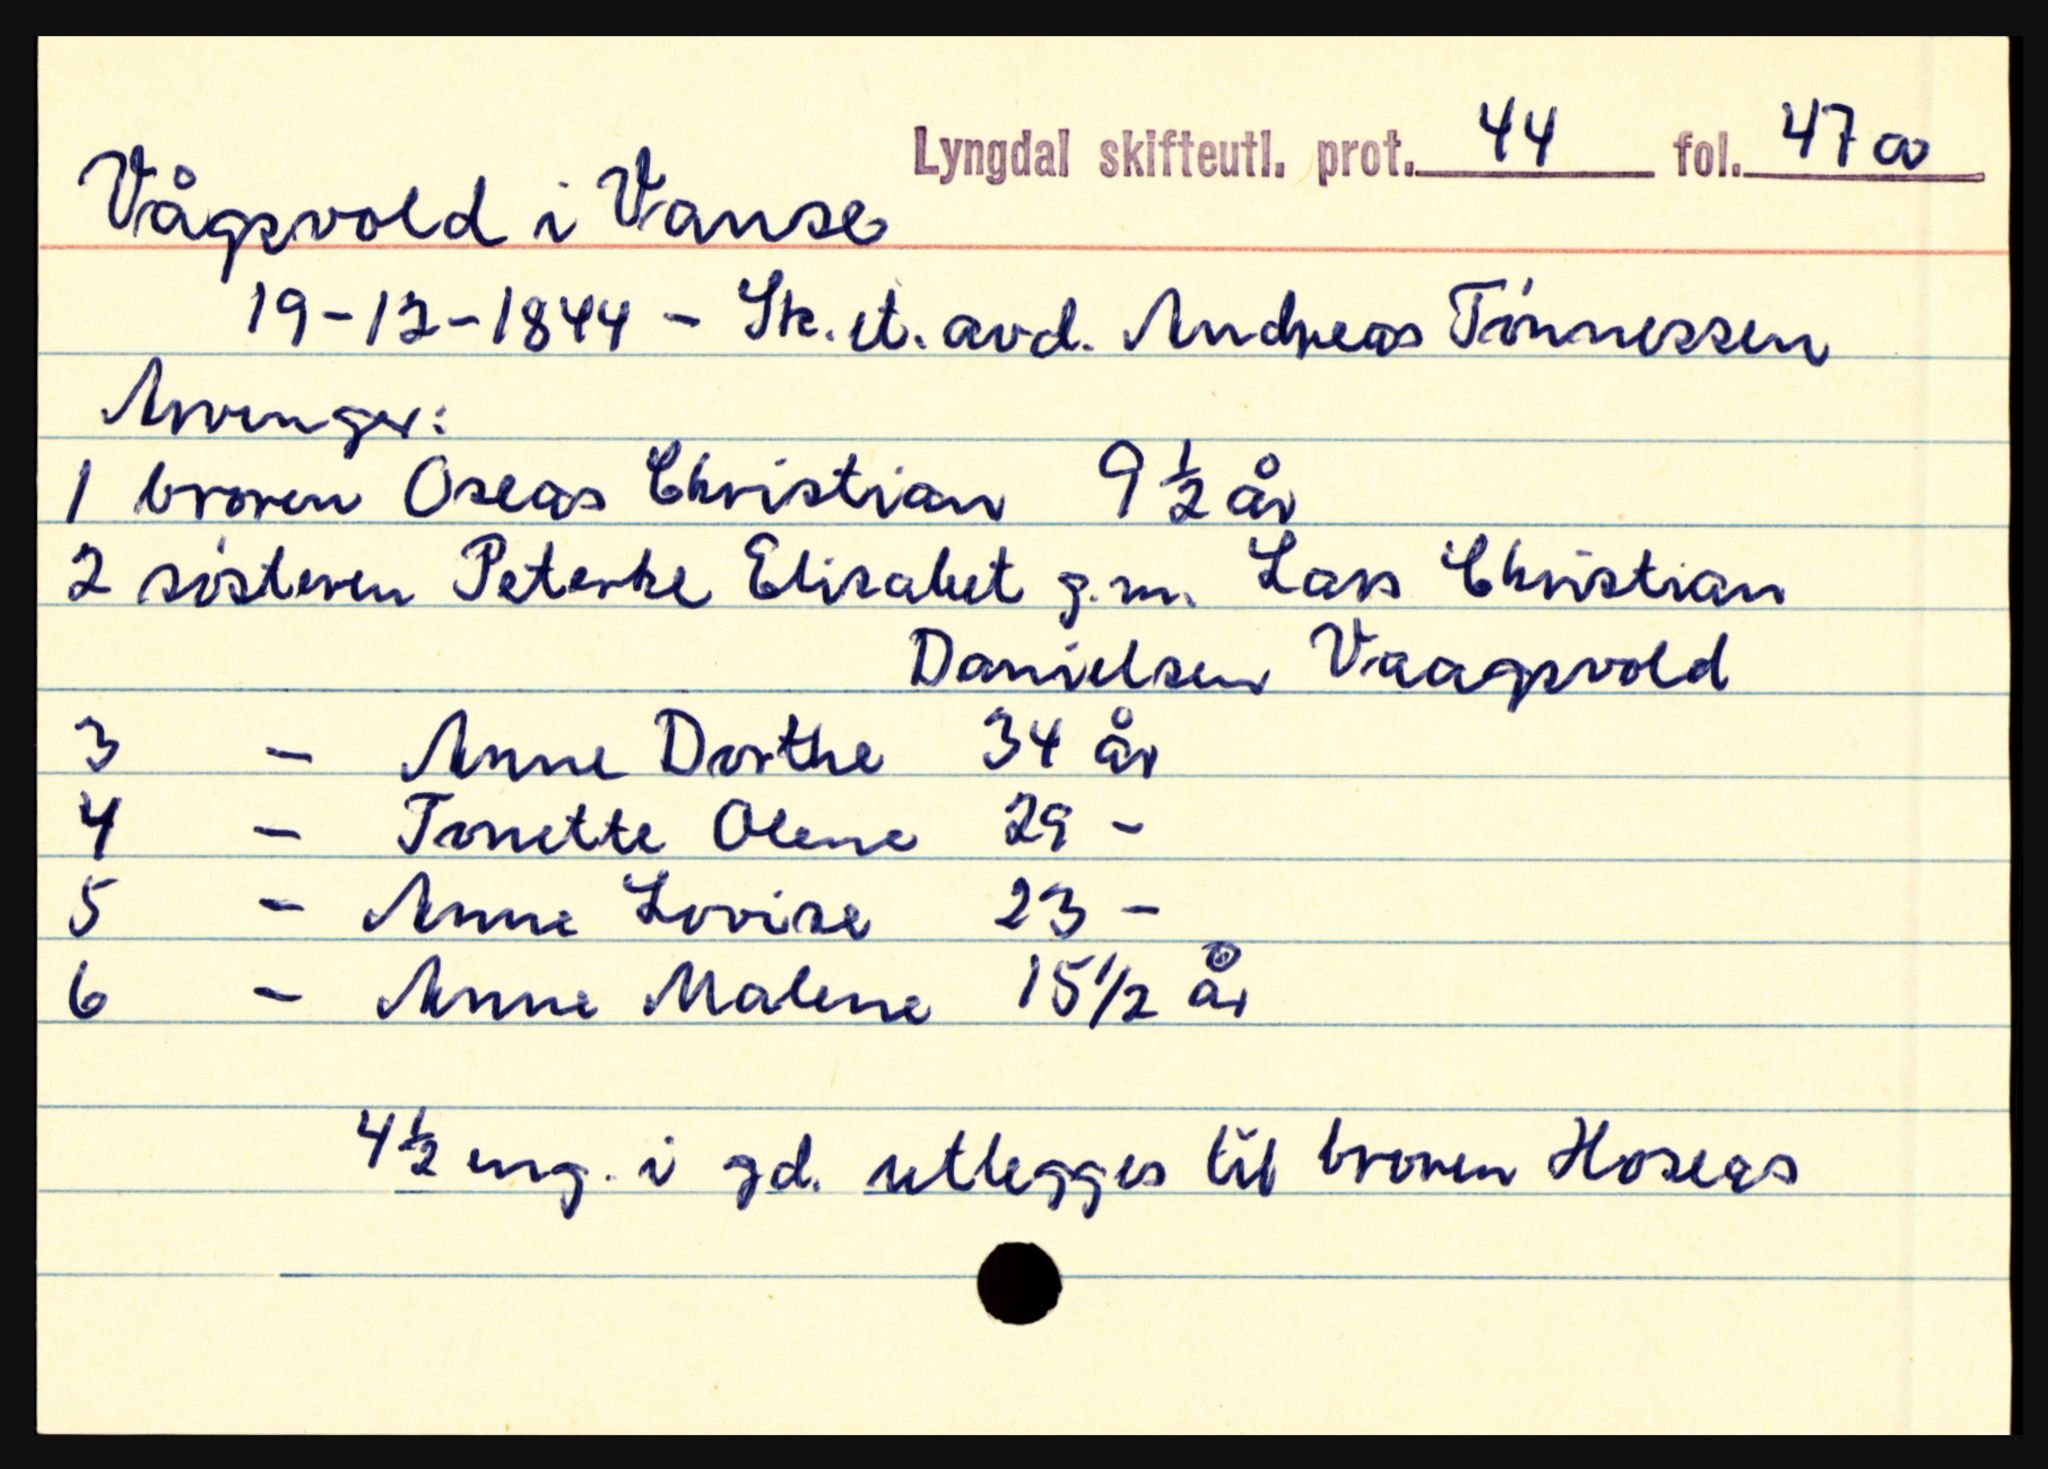 Lyngdal skifteutl. prot. 44 fol. 47a
Vågsvold i Vanse
19-12-1844 - Sk. et. avd. Andreas Tónnessen
Arvinger:
1 broren Oseas Christian 9 1/2 år
2 sósteren Peterke Elisabet g.m. Lars Christian
Danielsen Vaagsvold
3 - Anne Dorthe 34 år
4 - Tonette Olene 29 -
5 - Anne Lovise 23 -
6 - Anne Malene 15 1/2 år
4 1/2 eng. i gd. utlegges til broren Hoseas